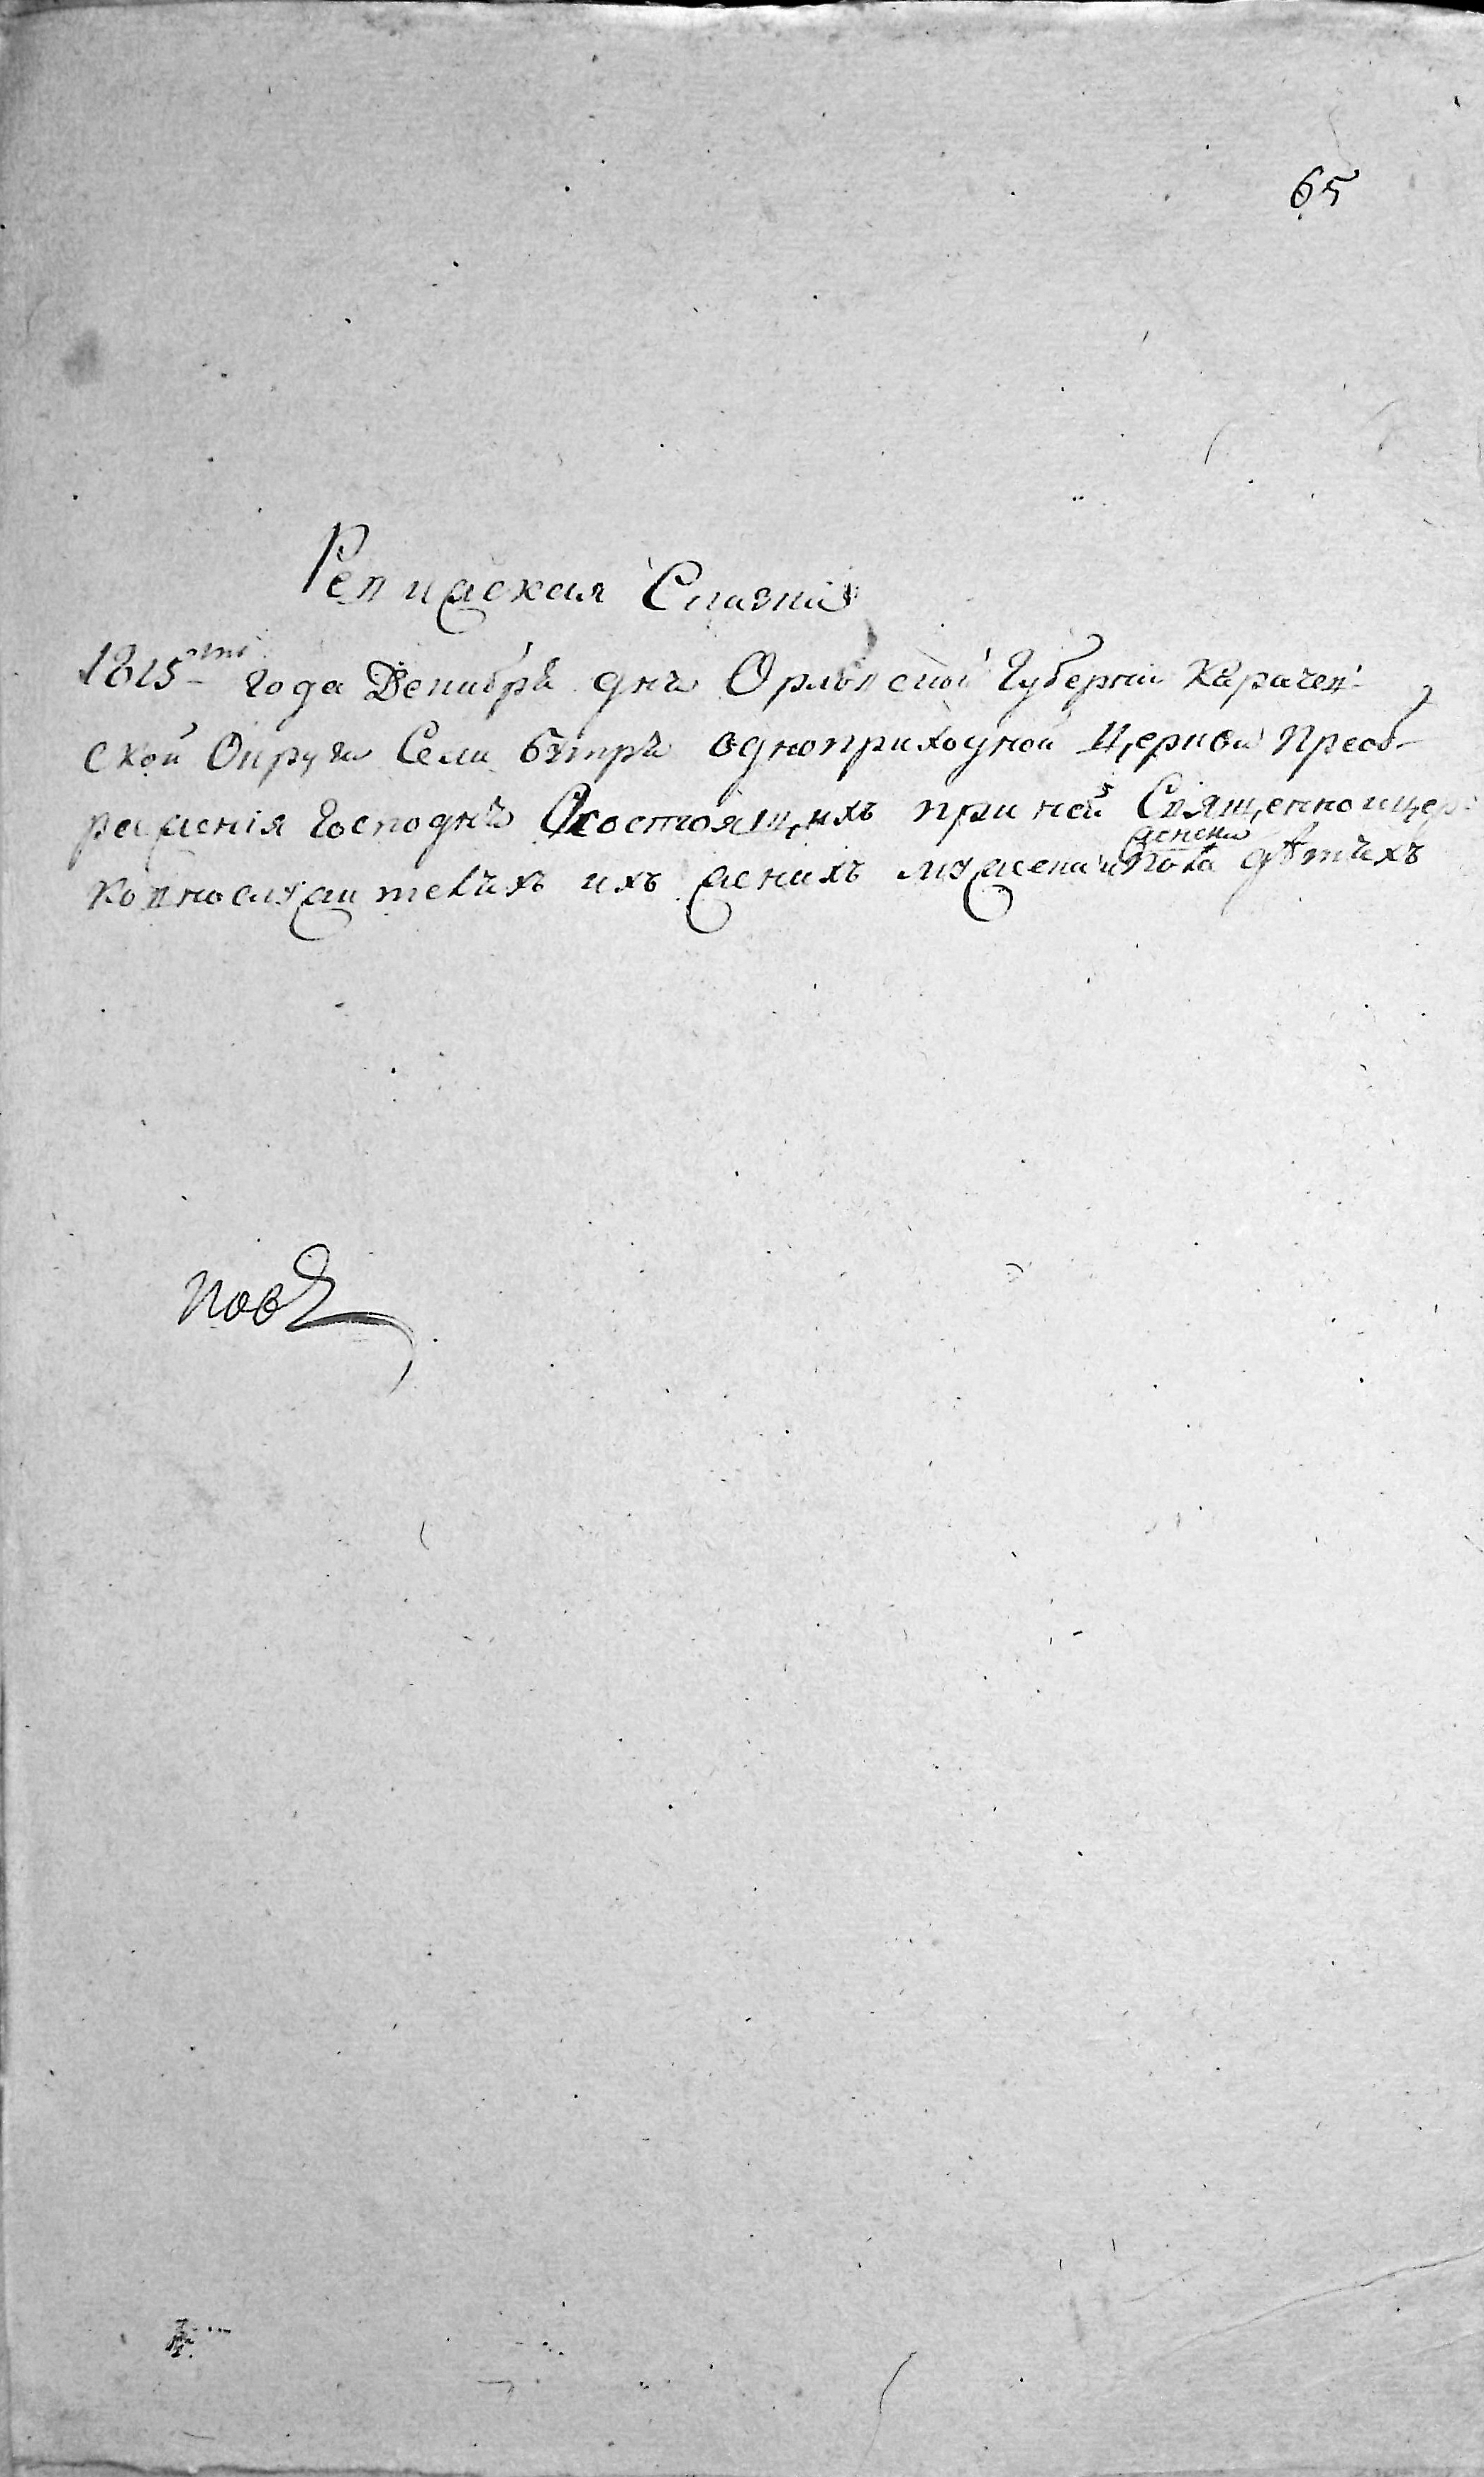 65
Ревижская Сказка
1815го года Декабря дня Орловской Губернии Карачев
ской Округи Села Бутръ одноприходной Церкви Преоб-
ражения Господня О состоящихъ при ней Священно и цер-
женска
ковнослужителяхъ ихъ женахъ мужеска и пола детяхъ